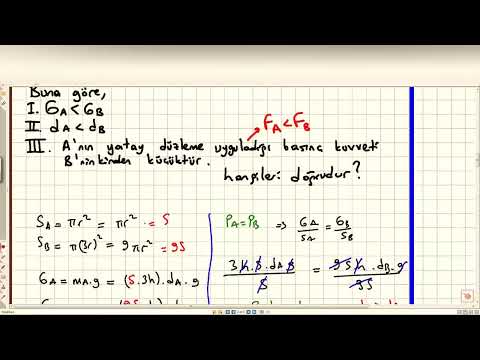 Buna göre,
I. GA < GB
II. dA < dB
III. A'nın yatay düzleme uyguladığı basınç kuvveti
B'ninkinden küçüktür.
FA < FB
hangileri doğrudur?
SA = πr² = πr² = S
SB = π(3r)² = 9πr² = 9S
GA = mA.g = (S.3h).dA.g
PA = PB ⇒ GA/SA = GB/SB
3h.S.dA.g/S = 9S.h.dB.g/9S